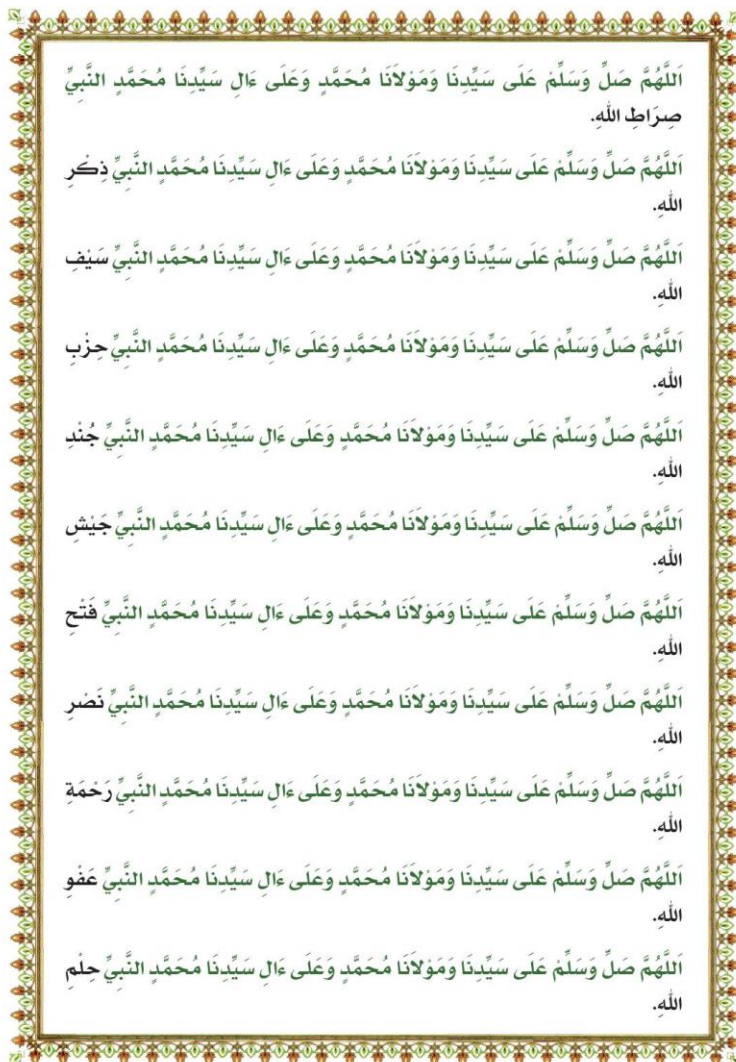 اَللَّهُمَّ صَلِّ وَسَلِّمْ عَلَى سَيِّدِنَا وَمَوْلَانَا مُحَمَّدٍ وَعَلَى ءَالِ سَيِّدِنَا مُحَمَّدٍ النَّبِيِّ
صِرَاطِ اللهِ.
اَللَّهُمَّ صَلِّ وَسَلِّمْ عَلَى سَيِّدِنَا وَمَوْلَانَا مُحَمَّدٍ وَعَلَى ءَالِ سَيِّدِنَا مُحَمَّدٍ النَّبِيِّ ذِكْرِ
اللهِ.
اَللَّهُمَّ صَلِّ وَسَلِّمْ عَلَى سَيِّدِنَا وَمَوْلَانَا مُحَمَّدٍ وَعَلَى ءَالِ سَيِّدِنَا مُحَمَّدٍ النَّبِيِّ سَيْفِ
اللهِ.
اَللَّهُمَّ صَلِّ وَسَلِّمْ عَلَى سَيِّدِنَا وَمَوْلَانَا مُحَمَّدٍ وَعَلَى ءَالِ سَيِّدِنَا مُحَمَّدٍ النَّبِيِّ حِزْبِ
اللهِ.
اَللَّهُمَّ صَلِّ وَسَلِّمْ عَلَى سَيِّدِنَا وَمَوْلَانَا مُحَمَّدٍ وَعَلَى ءَالِ سَيِّدِنَا مُحَمَّدٍ النَّبِيِّ جُنْدِ
اللهِ.
اَللَّهُمَّ صَلِّ وَسَلِّمْ عَلَى سَيِّدِنَا وَمَوْلَانَا مُحَمَّدٍ وَعَلَى ءَالِ سَيِّدِنَا مُحَمَّدٍ النَّبِيِّ جَيْشِ
اللهِ.
اَللَّهُمَّ صَلِّ وَسَلِّمْ عَلَى سَيِّدِنَا وَمَوْلَانَا مُحَمَّدٍ وَعَلَى ءَالِ سَيِّدِنَا مُحَمَّدٍ النَّبِيِّ فَتْحِ
اللهِ.
اَللَّهُمَّ صَلِّ وَسَلِّمْ عَلَى سَيِّدِنَا وَمَوْلَانَا مُحَمَّدٍ وَعَلَى ءَالِ سَيِّدِنَا مُحَمَّدٍ النَّبِيِّ نَصْرِ
اللهِ.
اَللَّهُمَّ صَلِّ وَسَلِّمْ عَلَى سَيِّدِنَا وَمَوْلَانَا مُحَمَّدٍ وَعَلَى ءَالِ سَيِّدِنَا مُحَمَّدٍ النَّبِيِّ رَحْمَةِ
اللهِ.
اَللَّهُمَّ صَلِّ وَسَلِّمْ عَلَى سَيِّدِنَا وَمَوْلَانَا مُحَمَّدٍ وَعَلَى ءَالِ سَيِّدِنَا مُحَمَّدٍ النَّبِيِّ عَفْوِ
اللهِ.
اَللَّهُمَّ صَلِّ وَسَلِّمْ عَلَى سَيِّدِنَا وَمَوْلَانَا مُحَمَّدٍ وَعَلَى ءَالِ سَيِّدِنَا مُحَمَّدٍ النَّبِيِّ حِلْمِ
اللهِ.